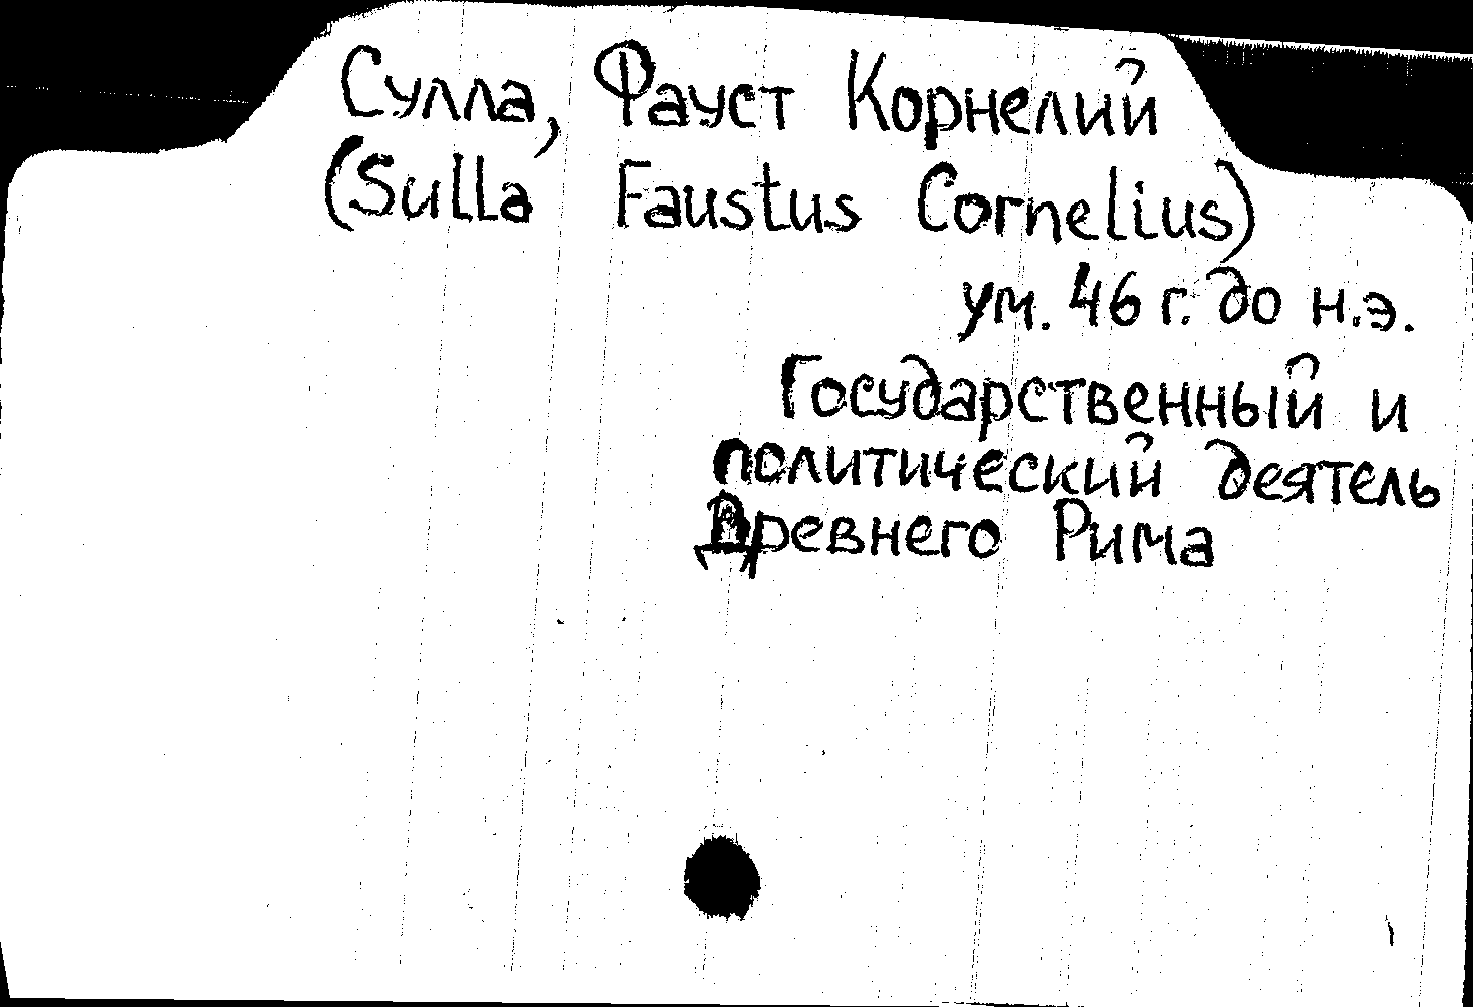 Сулла, Фауст Корнелий
(Sulla Faustus Cornelius)
ум. 46 г. до н.э.
Государственный и
политический деятель
Древнего Рима